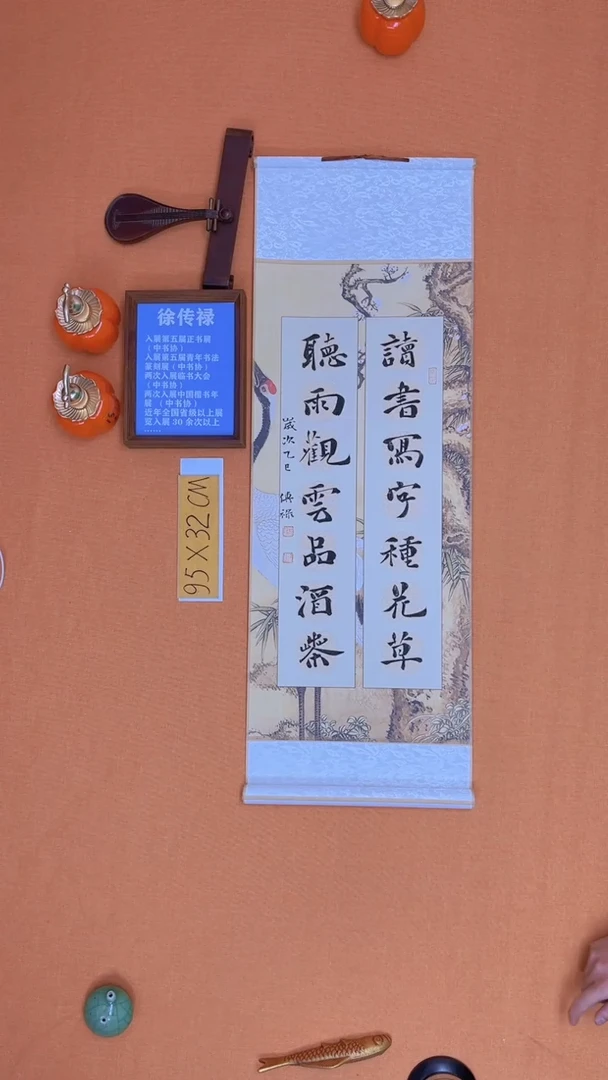 讀書寫字種花草
聽雨觀雲品酒茶
歲次乙巳 傳祿
徐传禄
入展第五届正书展
（中书协）
入展第五届青年书法
篆刻展（中书协）
两次入展临书大会
（中书协）
两次入展中国楷书年
展（中书协）
近年全国省级以上展
览入展 30 余次以上
......
95 X 32 CM